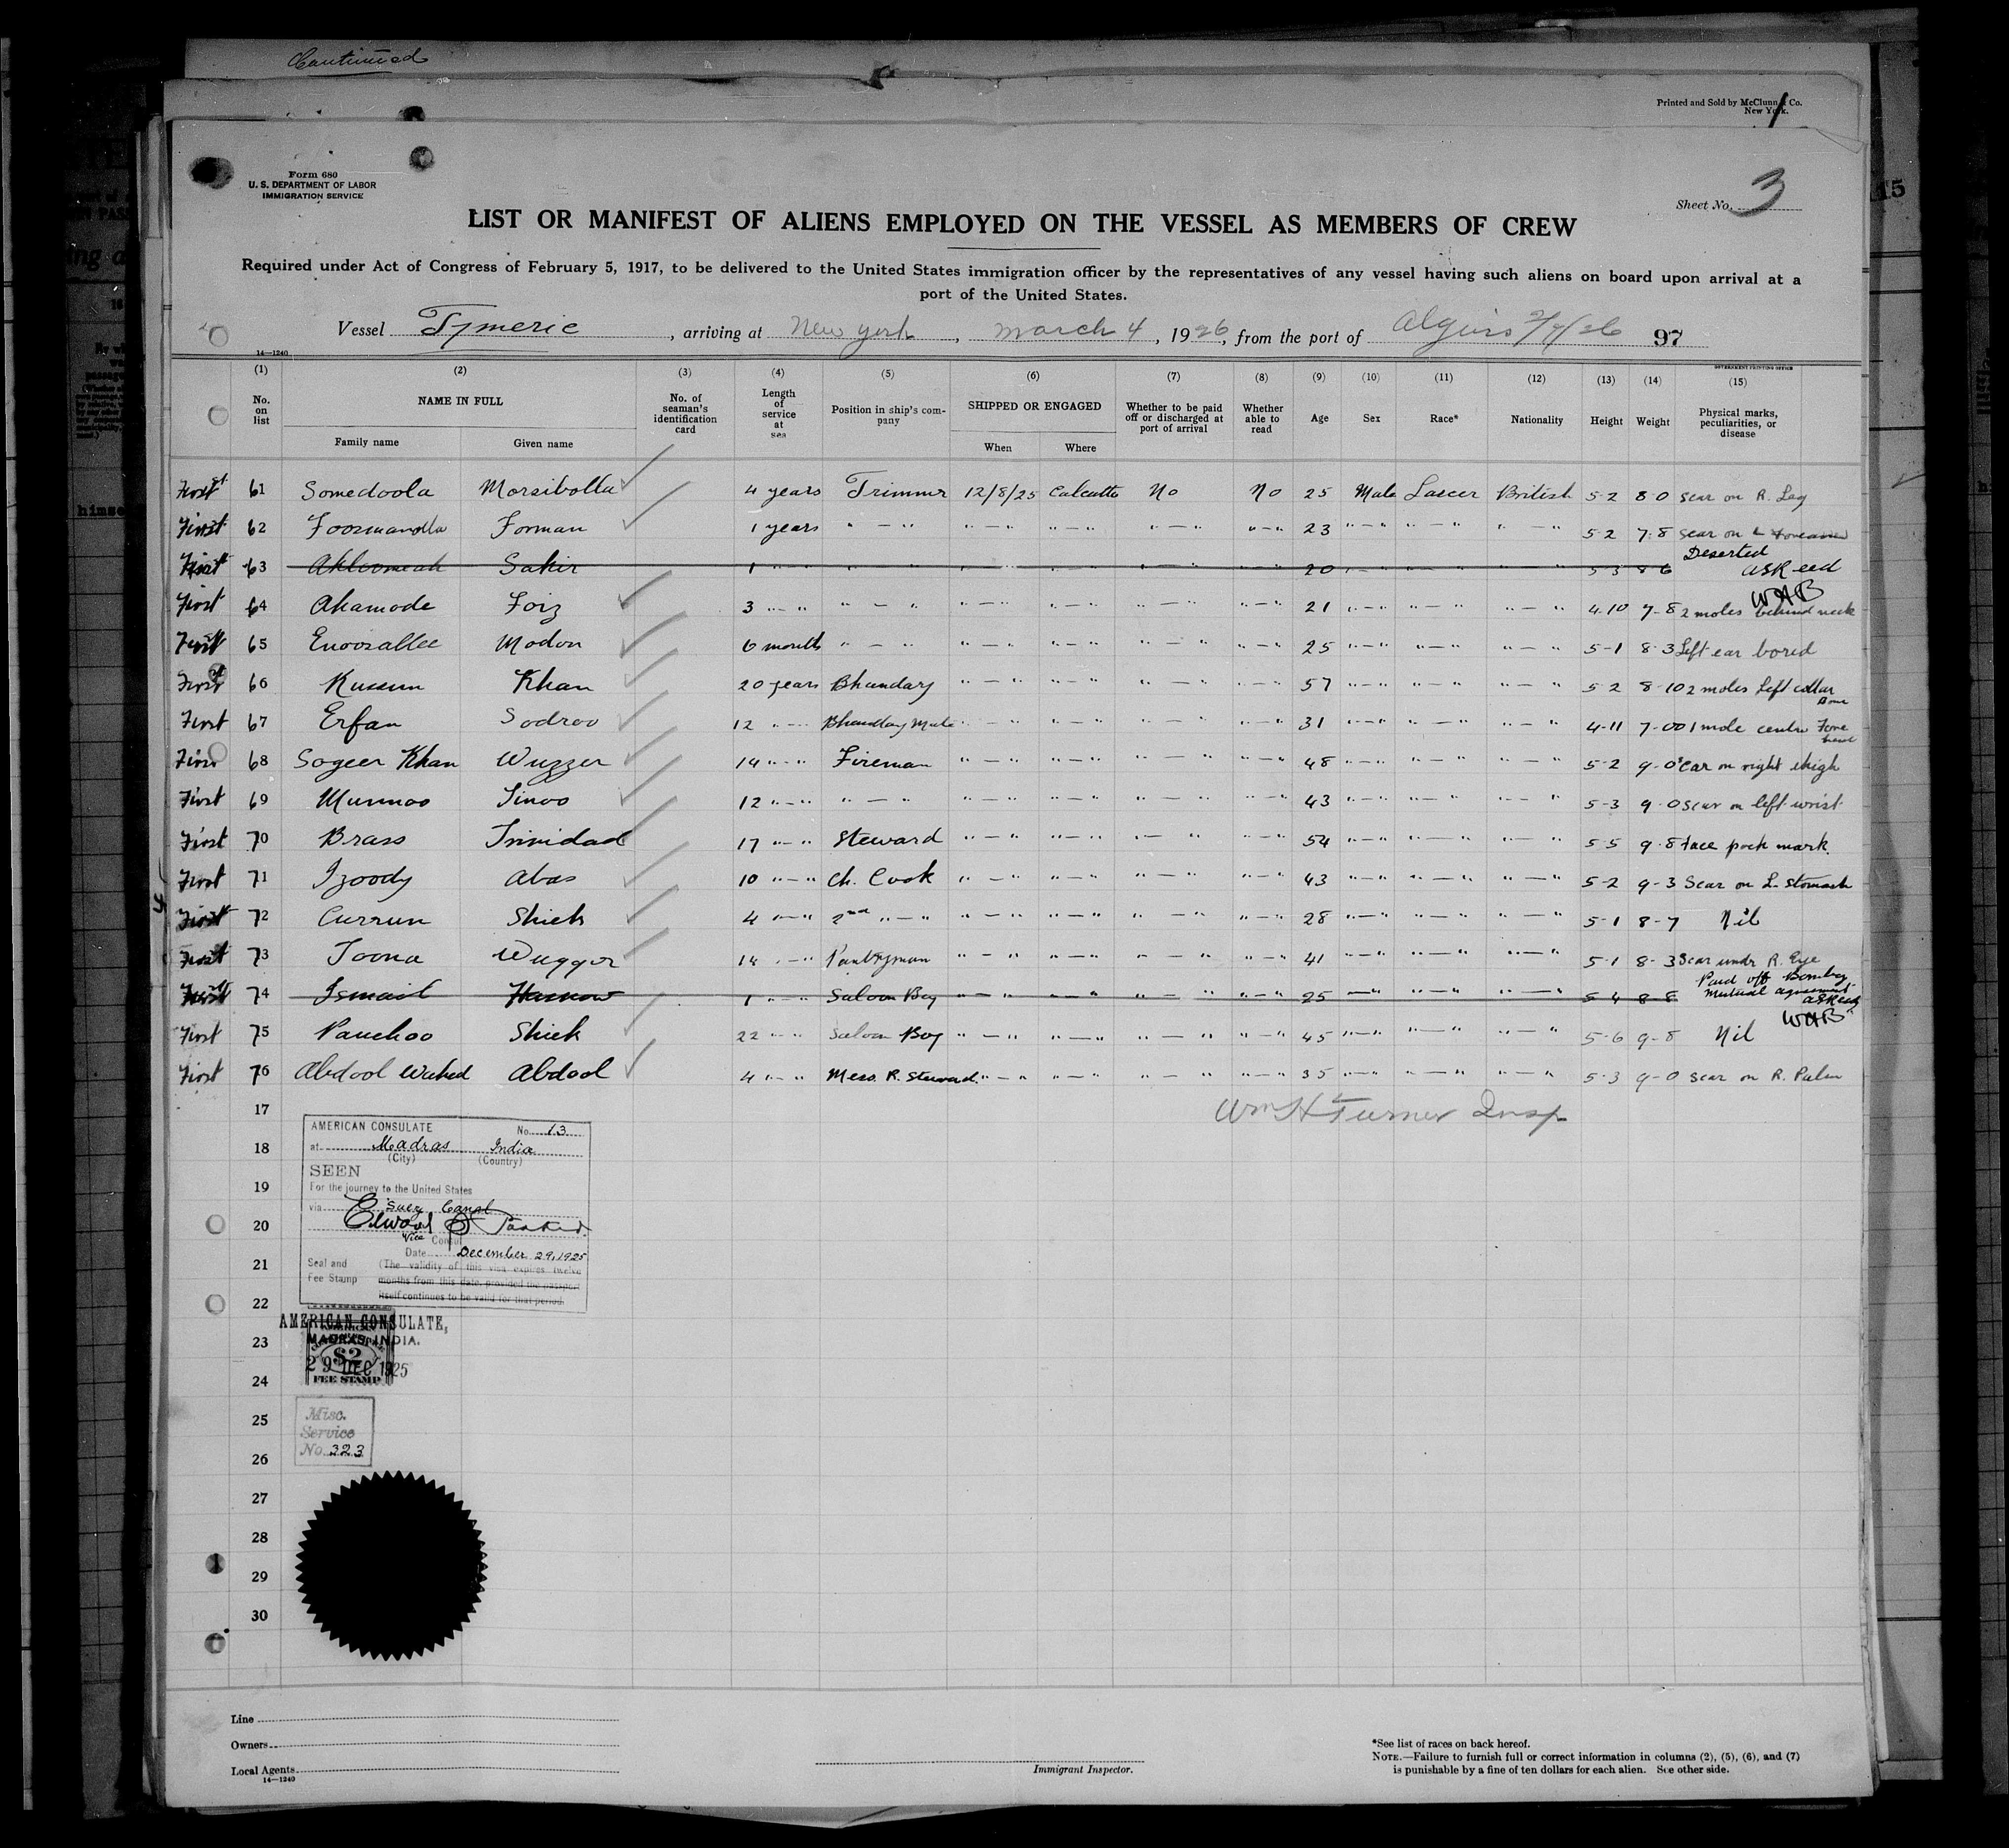 Continued
Printed and Sold by McClunn & Co.
New York.
Form 680
U. S. DEPARTMENT OF LABOR
IMMIGRATION SERVICE
Sheet No. 3
15
LIST OR MANIFEST OF ALIENS EMPLOYED ON THE VESSEL AS MEMBERS OF CREW
Required under Act of Congress of February 5, 1917, to be delivered to the United States immigration officer by the representatives of any vessel having such aliens on board upon arrival at a
port of the United States.
Vessel Tymeric , arriving at New York , March 4 , 1926, from the port of Algiers 97
14—1240
GOVERNMENT PRINTING OFFICE
(1) (2) (3) (4) (5) (6) (7) (8) (9) (10) (11) (12) (13) (14) (15)
No. on list NAME IN FULL Family name Given name No. of seaman's identification card Length of service at sea Position in ship's company SHIPPED OR ENGAGED When Where Whether to be paid off or discharged at port of arrival Whether able to read Age Sex Race* Nationality Height Weight Physical marks, peculiarities, or disease
First 61 Somedoola Morsibolla 4 years Trimmer 12/8/25 Calcutta No No 25 Male Lascer British 5-2 8 0 Scar on R. Leg
First 62 Foosmanolla Forman 1 years " — " " — " " — " " — " " — " 23 " — " " — " " — " 5-2 7-8 Scar on L Forearm
First 63 Akloomeah Sakir 1 " " " " 20 5-3 8 6 Deserted
ASReed
WHB
First 64 Ahamode Foiz 3 " — " " — " " — " " — " " — " " — " 21 " — " " — " " — " 4-10 7-8 2 moles behind neck
First 65 Enoorallee Modon 6 month " — " " — " " — " " — " " — " 25 " — " " — " " — " 5-1 8-3 Left ear bored
First 66 Kussum Khan 20 years Bhandary " — " " — " " — " " — " 57 " — " " — " " — " 5-2 8-10 2 moles Left collar Bone
First 67 Erfan Sodroo 12 " — " Bhandary Mate " — " " — " " — " " — " 31 " — " " — " " — " 4-11 7-00 1 mole centre Fore head
First 68 Sogeer Khan Wuzzer 14 " — " Fireman " — " " — " " — " " — " 48 " — " " — " " — " 5-2 9-0 Scar on right thigh
First 69 Munnoo Jinoo 12 " — " " — " " — " " — " " — " " — " 43 " — " " — " " — " 5-3 9-0 Scar on left wrist
First 70 Brass Trinidad 17 " — " Steward " — " " — " " — " " — " 54 " — " " — " " — " 5-5 9-8 Face pock mark.
First 71 Izoody Abas 10 " — " Ch. Cook " — " " — " " — " " — " 43 " — " " — " " — " 5-2 9-3 Scar on L. Stomach
First 72 Currun Shiek 4 " — " 2nd " — " " — " " — " " — " " — " 28 " — " " — " " — " 5-1 8-7 Nil
First 73 Toona Wugger 14 " — " Pantryman " — " " — " " — " " — " 41 " — " " — " " — " 5-1 8-3 Scar under R. Eye
First 74 Ismail Hasnow 1 " — " Saloon Boy " — " " — " " — " " — " 25 " — " " — " " — " 5 4 8-8 Paid off Bombay
mutual agreement
ASReed
WHB
First 75 Panchoo Shiek 22 " — " Saloon Boy " — " " — " " — " " — " 45 " — " " — " " — " 5-6 9-8 Nil
First 76 Abdool Wahed Abdool 4 " — " Mess. R. Steward. " — " " — " " — " " — " 35 " — " " — " " — " 5-3 9-0 Scar on R. Palm
17 Wm H Turner Insp
18
19
20
21
22
23
24
25
26
27
28
29
30
AMERICAN CONSULATE No. 13
at Madras India
(City) (Country)
SEEN
For the journey to the United States
via Suez Canal
Vice Consul
Date December 29, 1925
Seal and Fee Stamp
(The validity of this visa expires twelve
months from this date, provided the passport
itself continues to be valid for that period.
AMERICAN CONSULATE,
MADRAS, INDIA.
$2
29 DEC 1925
FEE STAMP
Misc.
Service
No. 323
Line
Owners
Local Agents
14—1240
Immigrant Inspector.
*See list of races on back hereof.
NOTE.—Failure to furnish full or correct information in columns (2), (5), (6), and (7)
is punishable by a fine of ten dollars for each alien. See other side.